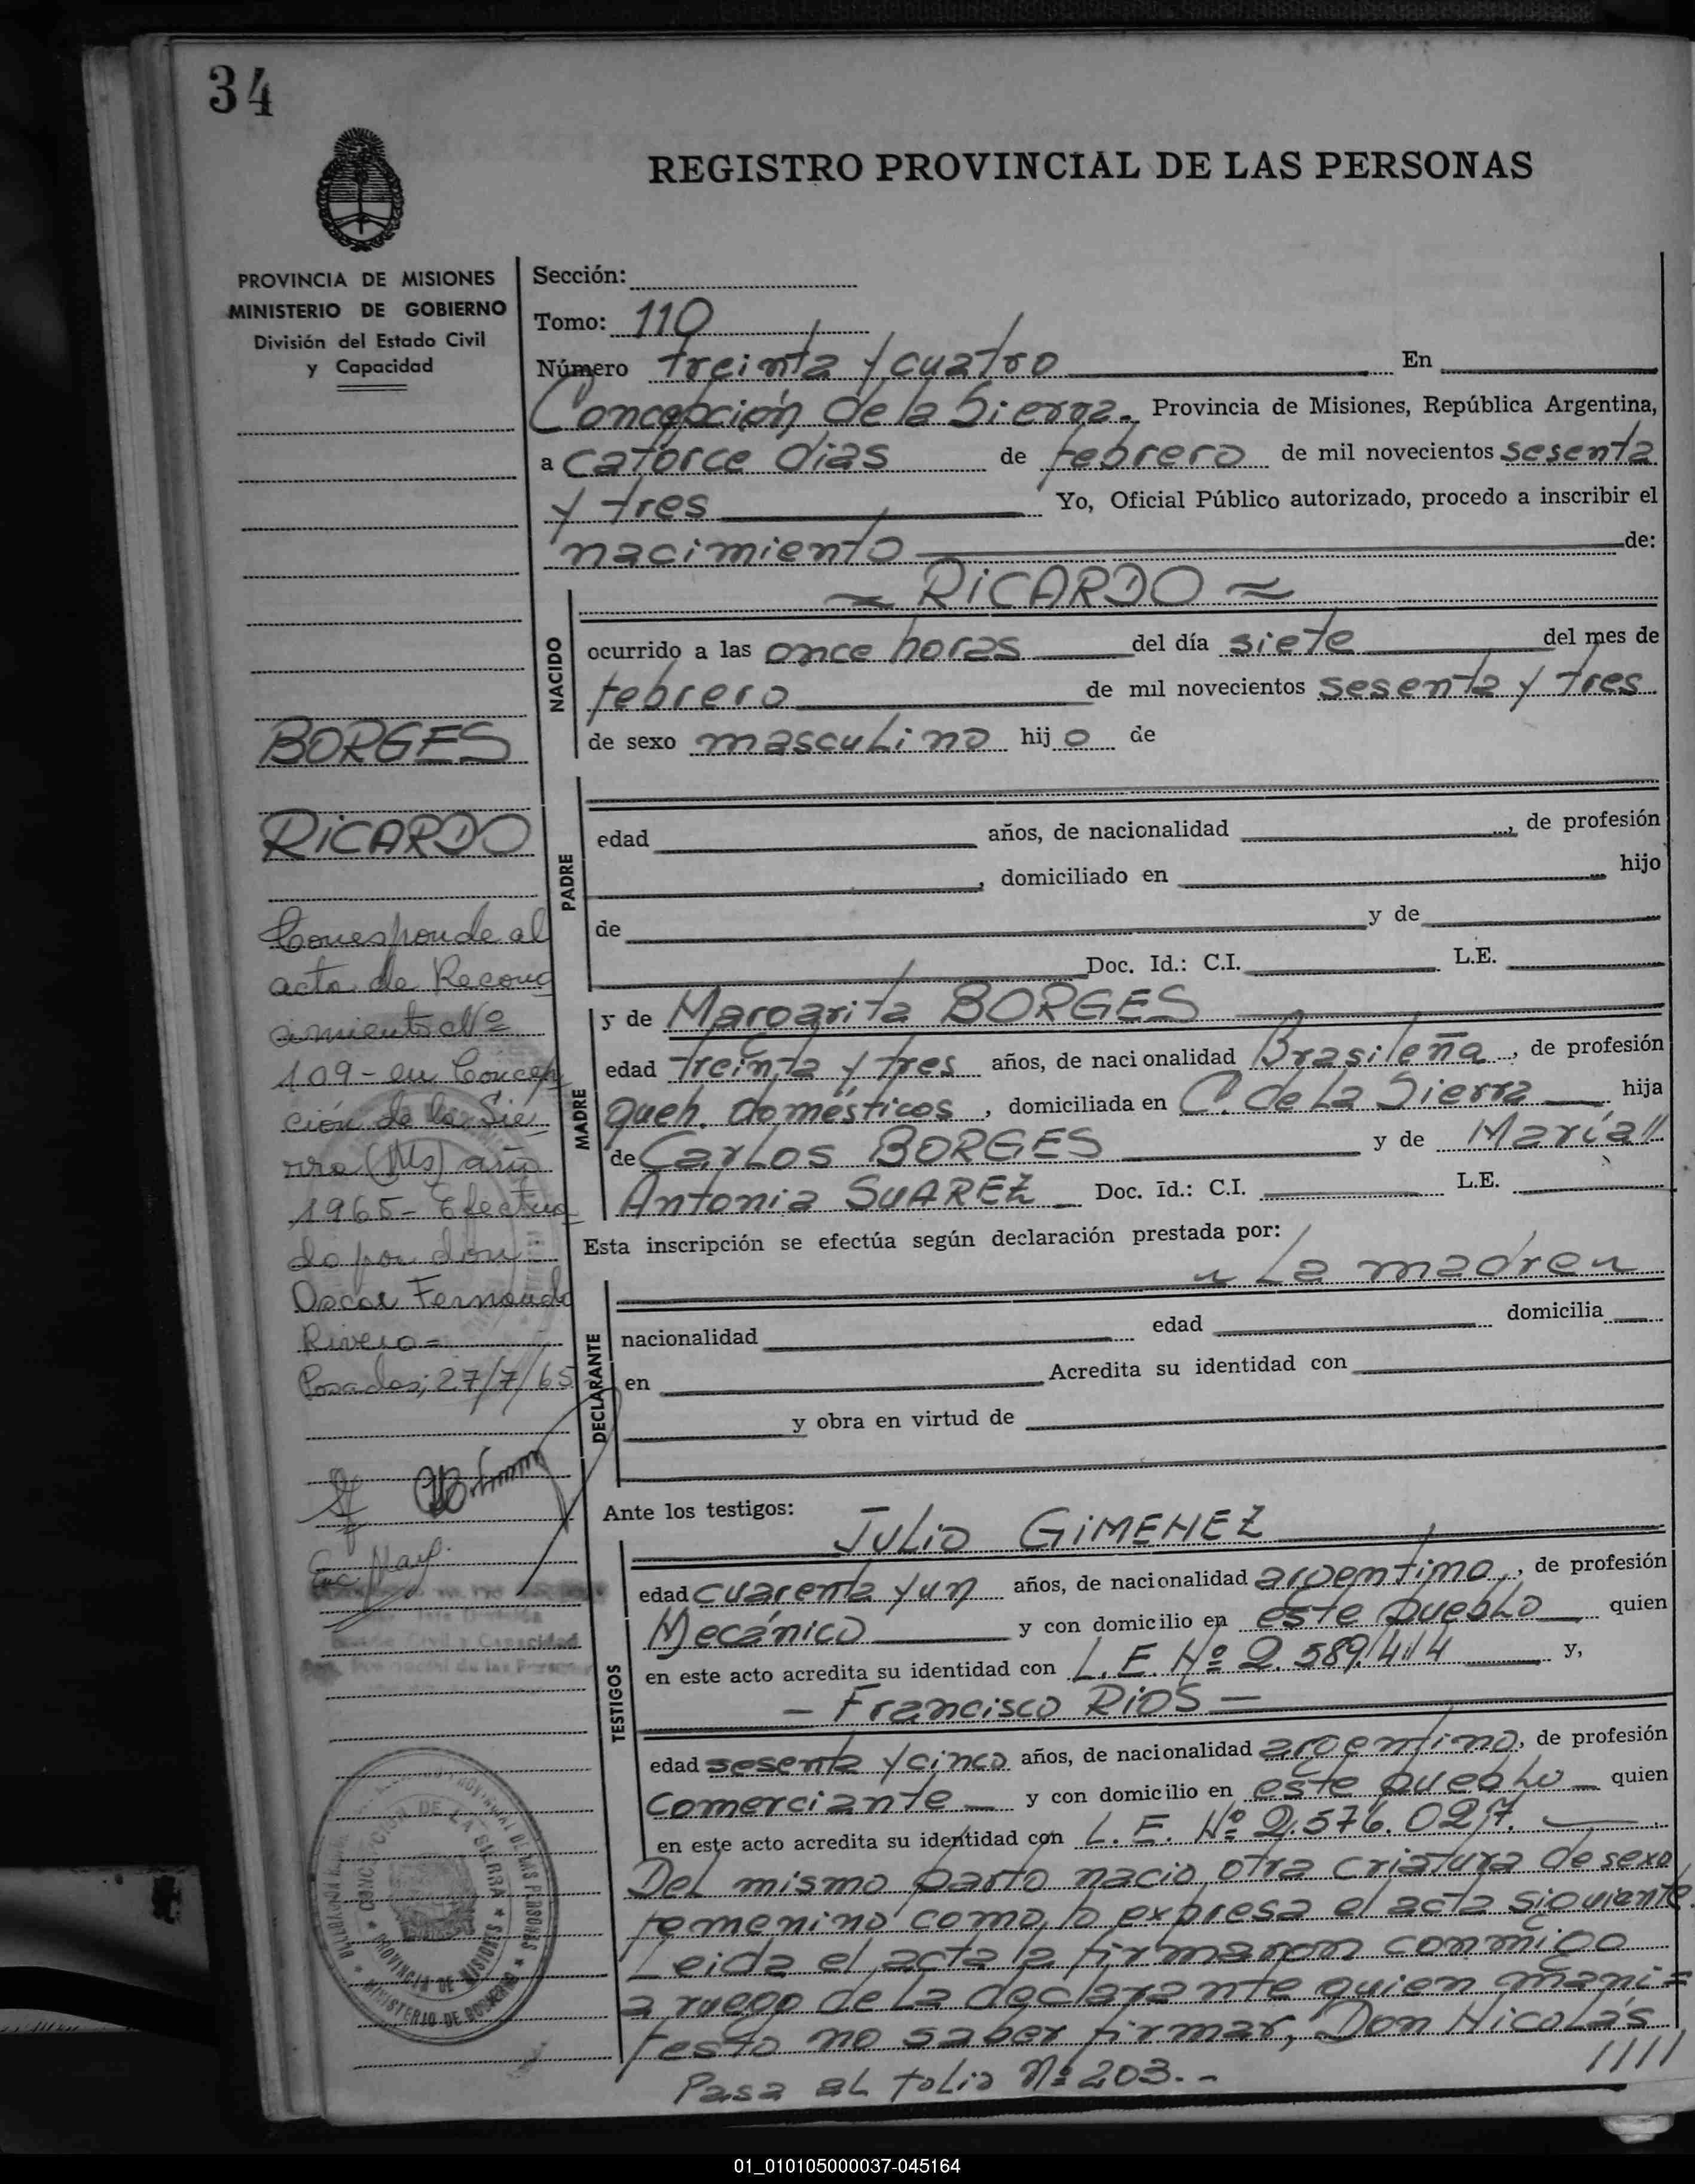 34
REGISTRO PROVINCIAL DE LAS PERSONAS
PROVINCIA DE MISIONES
MINISTERIO DE GOBIERNO
División del Estado Civil
y Capacidad
Sección:
Tomo: 110
Número treinta y cuatro En
Concepción de la Sierra. Provincia de Misiones, República Argentina,
a catorce dias de febrero de mil novecientos sesenta
y tres Yo, Oficial Público autorizado, procedo a inscribir el
nacimiento de:
RiCARDO
NACIDO
ocurrido a las once horas del día siete del mes de
febrero de mil novecientos sesenta y tres
de sexo masculino hijo de
BORGES
RiCARDO
Corresponde al
acta de Reconoc
imiento Nº
109 - en Concep
ción de la Sie
rra (Ms) año
1965 - Efectua
do por don
Oscar Fernando
Rivero =
Posadas; 27/7/65
PADRE
edad años, de nacionalidad , de profesión
, domiciliado en hijo
de y de
Doc. Id.: C.I. L.E.
MADRE
y de Margarita BORGES
edad treinta y tres años, de nacionalidad Brasileña, de profesión
queh. domésticos, domiciliada en C. de la Sierra hija
de Carlos BORGES y de María //
Antonia SUAREZ Doc. Id.: C.I. L.E.
Esta inscripción se efectúa según declaración prestada por:
La madre
DECLARANTE
nacionalidad edad domicilia
en Acredita su identidad con
y obra en virtud de
Ante los testigos:
JULiO GiMENEZ
TESTIGOS
edad cuarenta y un años, de nacionalidad argentino, de profesión
Mecánico y con domicilio en este pueblo quien
en este acto acredita su identidad con L. E. Nº 2.589.414 y,
- Francisco RiOS -
edad sesenta y cinco años, de nacionalidad argentino, de profesión
comerciante y con domicilio en este pueblo quien
en este acto acredita su identidad con L. E. Nº 2.576.027.
Del mismo parto nacio otra criatura de sexo
femenino como lo expresa el acta siguiente.
Leida el acta la firmaron conmigo
a ruego de la declarante quien mani=
festó no saber firmar, Don Nicolás
////
Pasa al folio Nº 203.-
CONCEPCION DE LA SIERRA
PROVINCIA DE MISIONES
MINISTERIO DE GOBIERNO
01_010105000037-045164